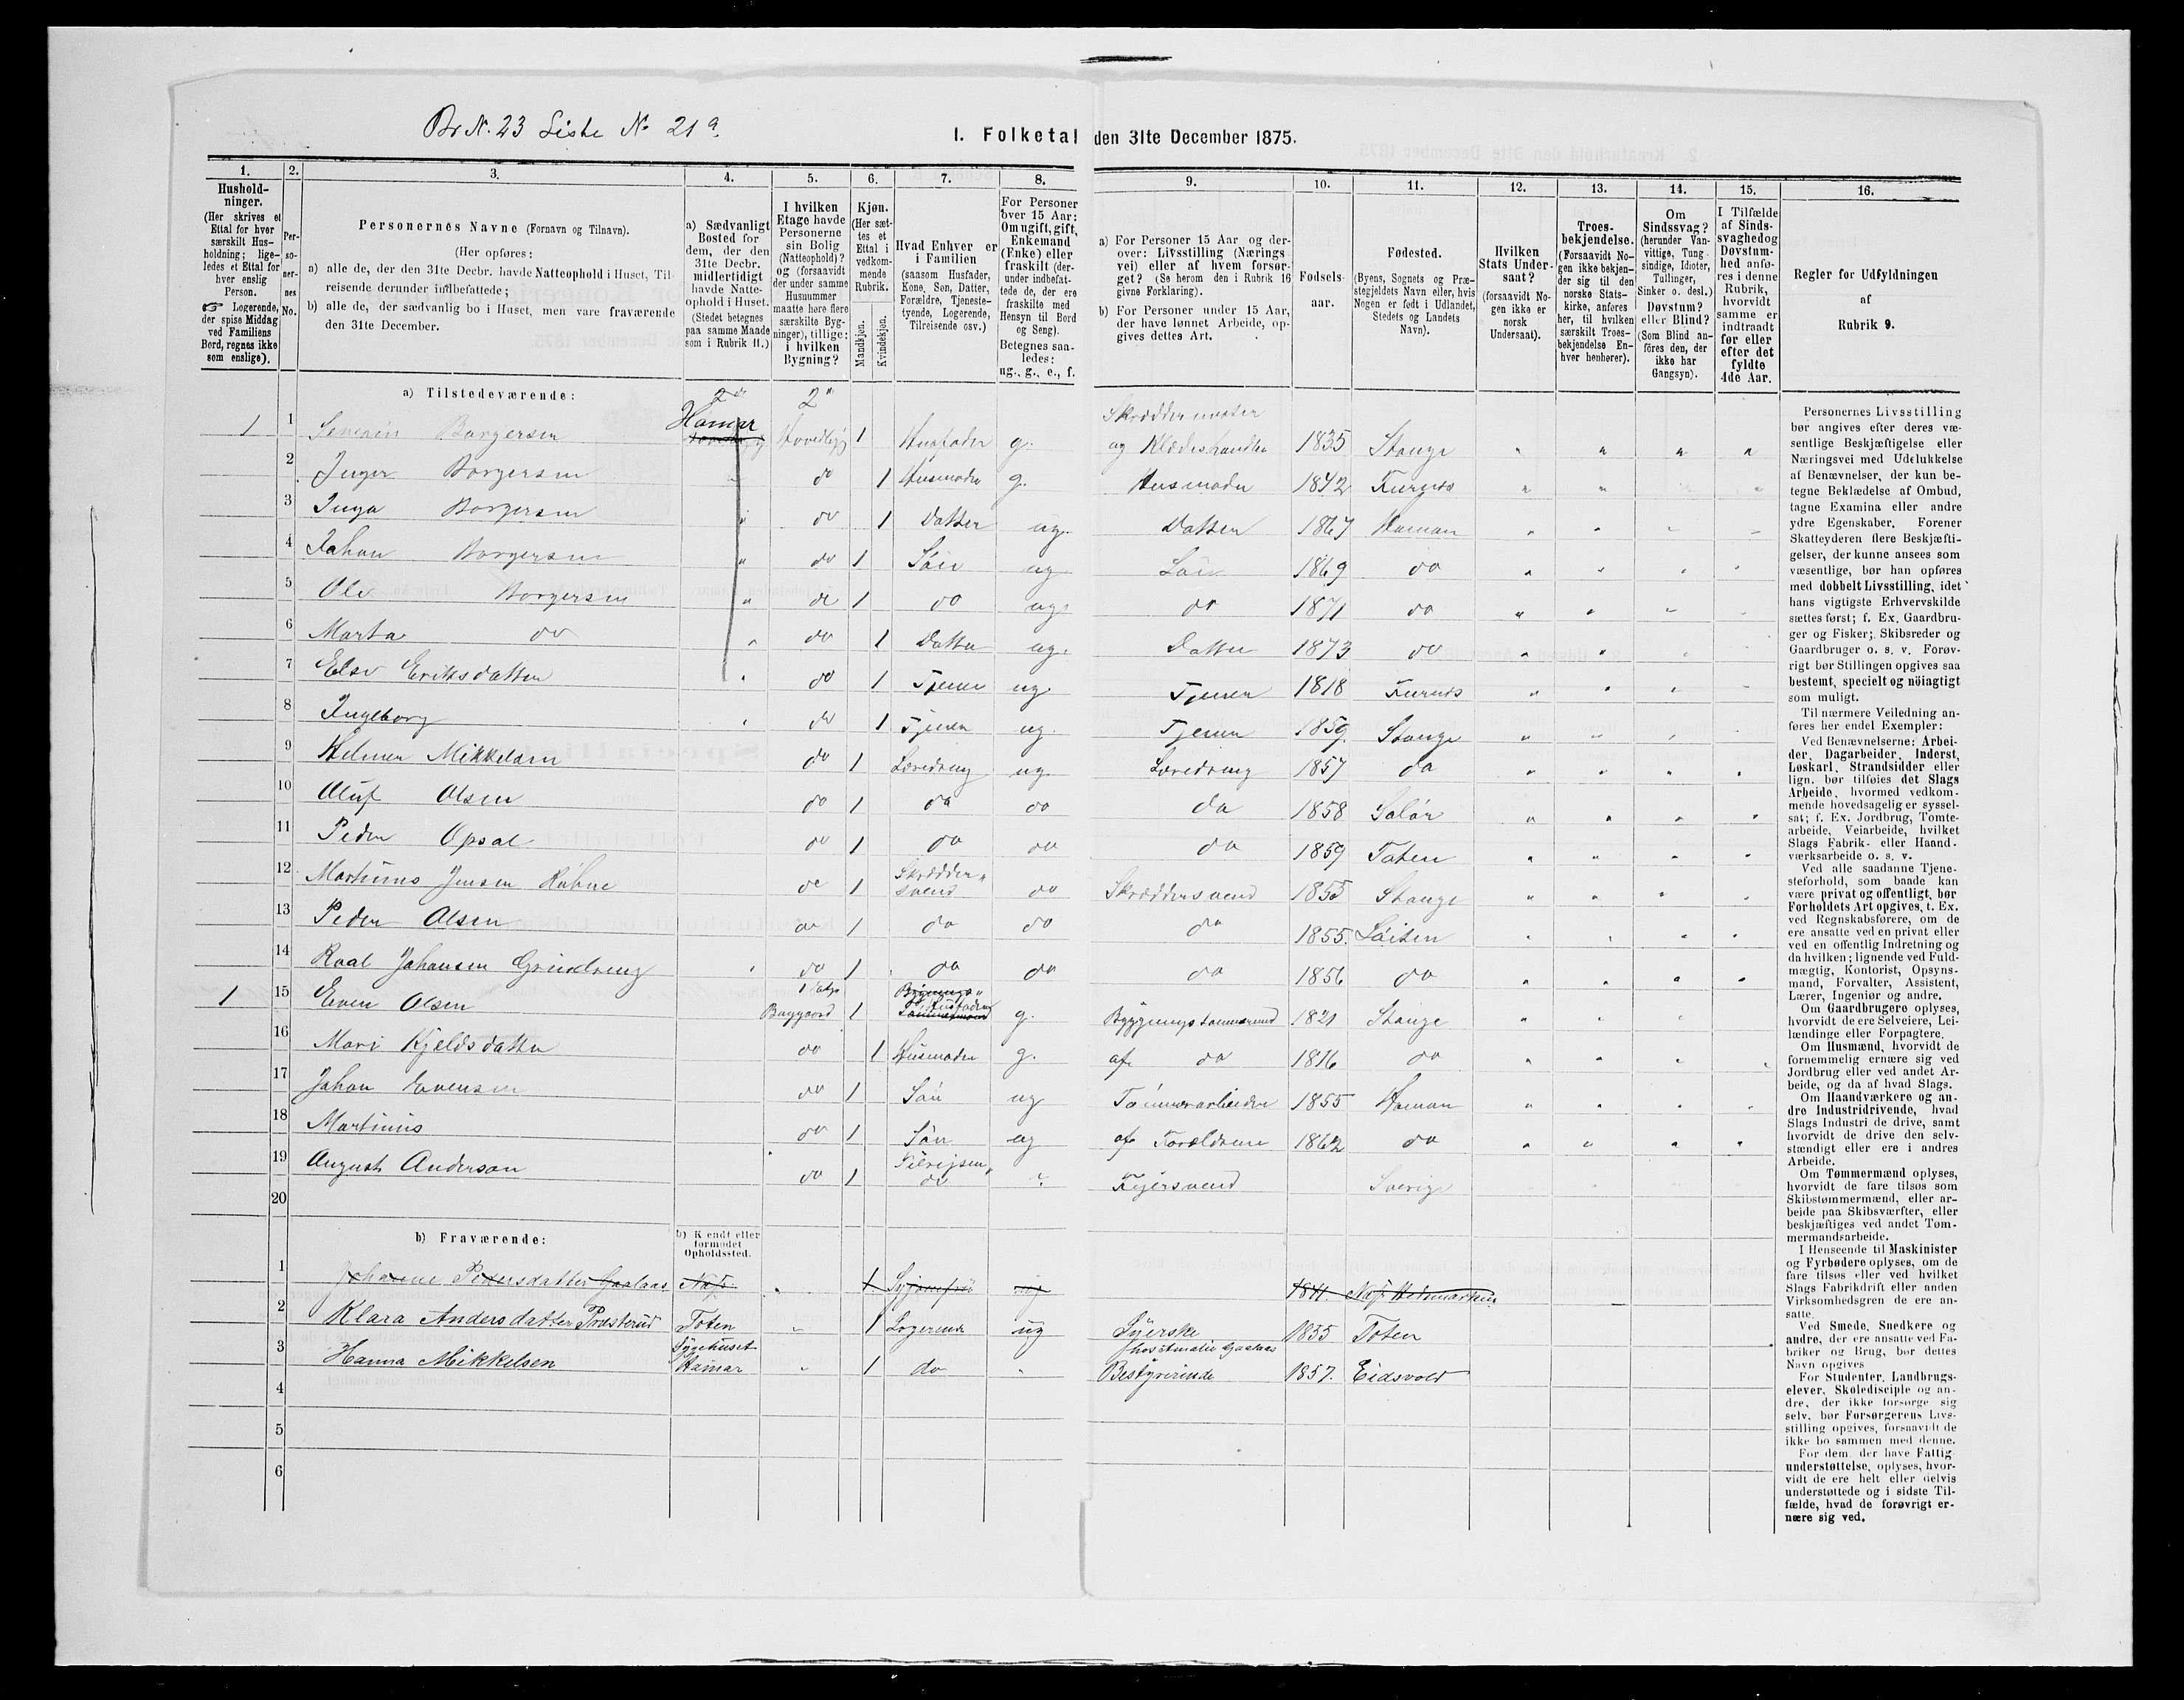 Br N. 23 Liste No 21 a.
I. Folketal den 31te December 1875.
1. 2. 3. 4. 5. 6. 7. 8. 9. 10. 11. 12. 13. 14. 15. 16.
Hushold-
ninger.
(Her skrives et
Ettal for hver
særskilt Hus-
holdning; lige-
ledes et Ettal for
hver enslig
Person.
☞ Logerende,
der spise Middag
ved Familiens
Bord, regnes ikke
som enslige).
Per-
so-
ner-
nes
No.
Personernes Navne (Fornavn og Tilnavn).
(Her opføres:
a) alle de, der den 31te Decbr. havde Natteophold i Huset, Til-
reisende derunder indbefattede;
b) alle de, der sædvanlig bo i Huset, men vare fraværende
den 31te December.
a) Sædvanligt
Bosted for
dem, der den
31te Decbr.
midlertidigt
havde Natte-
ophold i Huset.
(Stedet betegnes
paa samme Maade
som i Rubrik 11.)
I hvilken
Etage havde
Personerne
sin Bolig
(Natteophold)?
og (forsaavidt
der under samme
Husnummer
maatte høre flere
særskilte Byg-
ninger), tillige:
i hvilken
Bygning?
Kjøn.
(Her sæt-
tes et
Ettal i
vedkom-
mende
Rubrik.
Mandkjøn.
Kvindekjøn.
Hvad Enhver er
i Familien
(saasom Husfader,
Kone, Søn, Datter,
Forældre, Tjeneste-
tyende, Logerende,
Tilreisende osv.)
For Personer
over 15 Aar:
Om ugift, gift,
Enkemand
(Enke) eller
fraskilt (der-
under indbefat-
tede de, der ere
fraskilte med
Hensyn til Bord
og Seng).
Betegnes saa-
ledes:
ug., g., e., f.
a) For Personer 15 Aar og der-
over: Livsstilling (Nærings-
vei) eller af hvem forsør-
get? (Se herom den i Rubrik 16
givne Forklaring).
b) For Personer under 15 Aar,
der have lønnet Arbeide, op-
gives dettes Art.
Fødsels-
aar.
Fødested.
(Byens, Sognets og Præ-
stegjeldets Navn eller, hvis
Nogen er født i Udlandet,
Stedets og Landets
Navn).
Hvilken
Stats Under-
saat?
(forsaavidt No-
gen ikke er
norsk
Undersaat).
Troes-
bekjendelse.
(Forsaavidt No-
gen ikke bekjen-
der sig til den
norske Stats-
kirke, anføres
her, til hvilken
særskilt Troes-
bekjendelse En-
hver henhører).
Om
Sindssvag?
(herunder Van-
vittige, Tung-
sindige, Idioter,
Tullinger,
Sinker o. desl.)
Døvstum?
eller Blind?
(Som Blind an-
føres den, der
ikke har
Gangsyn).
I Tilfælde
af Sinds-
svaghed og
Døvstum-
hed anfø-
res i denne
Rubrik,
hvorvidt
samme er
indtraadt
før eller
efter det
fyldte
4de Aar.
Regler for Udfyldningen
af
Rubrik 9.
a) Tilstedeværende:
2" 2"
Hamar Skrædder mester
1 1 Borgersen Hovedbyg 1 Husfader g. og Klædeshandler 1835 Stange
2 Inger Borgersen do 1 Husmoder g. Husmoder 1842 Furnes
3 Inga Borgersen " do 1 Datter ug. Datter 1867 Hamar
4 Johan Borgersen " do 1 Søn ug Søn 1869 do
5 Ole Borgersen " do 1 do ug. do 1871 do
6 Marta do " do 1 Datter ug. Datter 1873 do
7 Else Eriksdatter " do 1 Tjener ug. Tjener 1818 Furnes
8 Ingeborg " do 1 Tjener ug. Tjener 1859. Stange
9 Helmer Mikkelsen do 1 Læredreng ug. Læredreng 1857 do
10 Oluf Olsen do 1 do do do 1858 Solør
11 Peder Opsal do 1 do do do 1859 Toten
12 Martinus Jensen do 1 Skrædder-
svend do Skræddersvend 1855 Stange
13 Peder Olsen do 1 do do do 1855. Løiten
14 Roal Johansen Grindreng do 1 do do do 1856 do
1 15 Even Olsen Baggaard 1 Husfader g. Bygningstømmermand 1821 Stange
16 Mari Kjeldsdatter do 1 Husmoder g. af do 1816 do
17 Johan Evensen do 1 Søn ug Tømmerarbeider 1855 Hamar
18 Martinus do 1 Søn ug af Forældrene 1862 do
19 August Anderson do 1 Tilreisen-
de Sverige
20
b) Fraværende:
b) Kendt eller
formodet
Opholdssted.
1 Johanne Pedersdatter Gaalaas Næs 1 Syjomfru ug 1841. Næs Hedemarken
2 Klara Andersdatter Præsterud Toten 1 Logerende ug Syerske 1835 Toten
3 Hanna Mikkelsen Sygehuset
Hamar 1 do Bestyrerinde 1857. Eidsvold
4
5
6
Personernes Livsstilling
bør angives efter deres væ-
sentlige Beskjæftigelse eller
Næringsvei med Udelukkelse
af Benævnelser, der kun be-
tegne Beklædelse af Ombud,
tagne Examina eller andre
ydre Egenskaber. Forener
Skatteyderen flere Beskjæfti-
gelser, der kunne ansees som
væsentlige, bør han opføres
med dobbelt Livsstilling, idet
hans vigtigste Erhvervskilde
sættes først; f. Ex. Gaardbru-
ger og Fisker; Skibsreder og
Gaardbruger o. s. v. Forøv-
rigt bør Stillingen opgives saa
bestemt, specielt og nöiagtigt
som muligt.
Til nærmere Veiledning an-
føres her endel Exempler:
Ved Benævnelserne: Arbei-
der, Dagarbeider, Inderst,
Løskarl, Strandsidder eller
lign. bør tilføies det Slags
Arbeide, hvormed vedkom-
mende hovedsagelig er syssel-
sat; f. Ex. Jordbrug, Tomte-
arbeide, Veiarbeide, hvilket
Slags Fabrik- eller Haand-
værksarbeide o. s. v.
Ved alle saadanne Tjene-
steforhold, som baade kan
være privat og offentligt, bør
Forholdets Art opgives, t. Ex.
ved Regnskabsførere, om de
ere ansatte ved en privat eller
ved en offentlig Indretning og
da hvilken; lignende ved Fuld-
mægtig, Kontorist, Opsyns-
mand, Forvalter, Assistent,
Lærer, Ingeniør og andre.
Om Gaardbrugere oplyses,
hvorvidt de ere Selveiere, Lei-
lændinge eller Forpagtere.
Om Husmænd, hvorvidt de
fornemmelig ernære sig ved
Jordbrug eller ved andet Ar-
beide, og da af hvad Slags.
Om Haandværkere og an-
dre Industridrivende, hvad
Slags Industri de drive, samt
hvorvidt de drive den selv-
stændigt eller ere i andres
Arbeide.
Om Tømmermænd oplyses,
hvorvidt de fare tilsøs som
Skibstømmermænd, eller ar-
beide paa Skibsværfter, eller
beskjæftiges ved andet Tøm-
mermandsarbeide.
I Henseende til Maskinister
og Fyrbødere oplyses, om de
fare tilsøs eller ved hvilket
Slags Fabrikdrift eller anden
Virksomhedsgren de ere an-
satte.
Ved Smede, Snedkere og
andre, der ere ansatte ved Fa-
briker og Brug, bør dettes
Navn opgives
For Studenter, Landbrugs-
elever, Skoledisciple og an-
dre, der ikke forsørge sig
selv, bør Forsørgerens Livs-
stilling opgives, forsaavidt de
ikke bo sammen med denne.
For dem, der have Fattig-
understøttelse, oplyses, hvor-
vidt de ere helt eller delvis
understøttede og i sidste Til-
fælde, hvad de forøvrigt er-
nære sig ved.